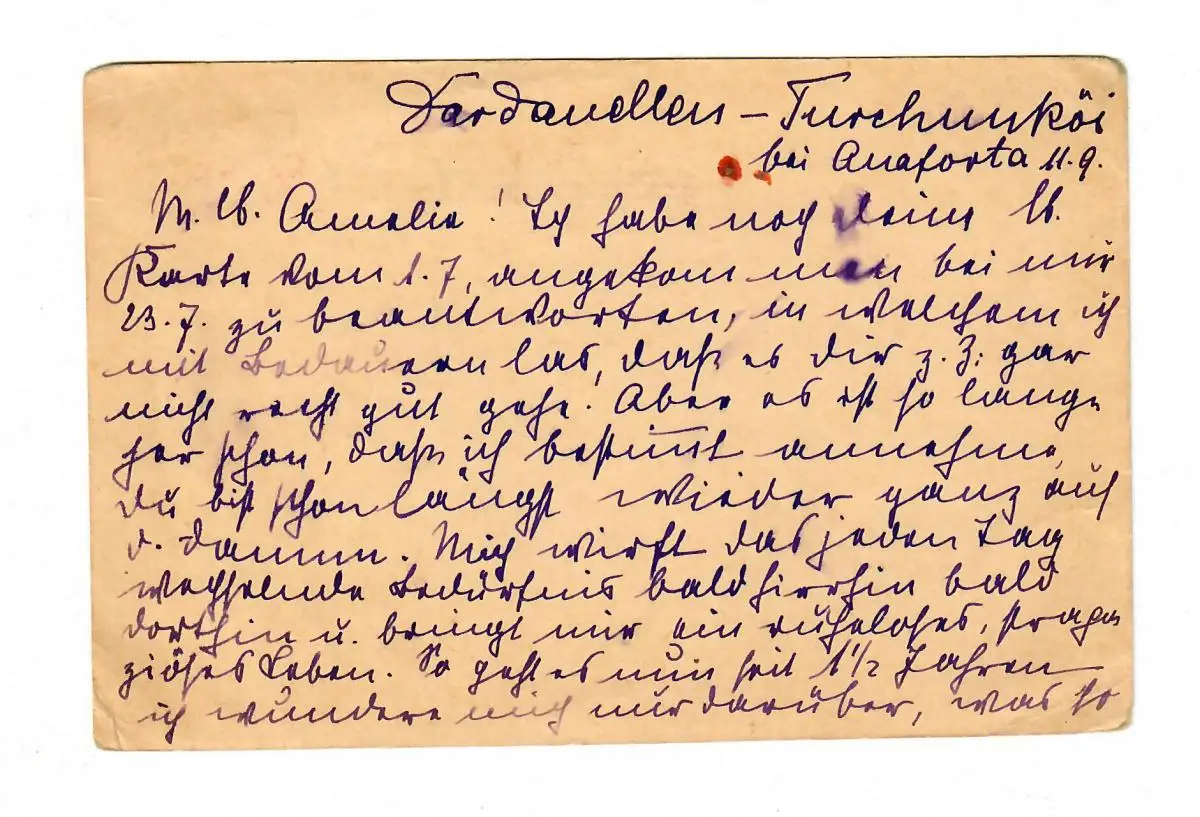 Dardanellen – Turchunköi
bei Anaforta 11.9.
M. lb. Amelie! Ich habe noch deine lb.
Karte vom 1.7, angekommen bei mir
23.7. zu beantworten, in welchem ich
mit Bedauern las, daß es dir z. Z. gar
nicht recht gut gehe. Aber es ist so lange
her schon, daß ich bestimt annehme,
du bist schon längst wieder ganz auf
d. Damm. Mich wirft das jeden Tag
wechselnde Bedürfnis bald hierhin bald
dorthin u. bringt mir ein ruheloses, strapa
ziöses Leben. So geht es nun seit 1½ Jahren
ich wundere mich nur darüber, was so